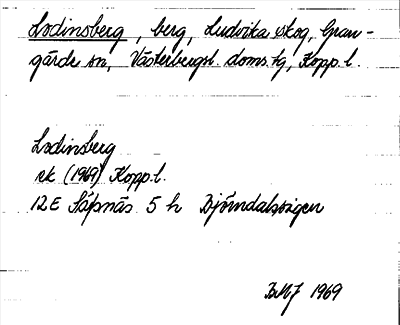 Lodinsberg, berg, Ludvika skog, Gran-
gärde sn, Västerbergsl. doms. hg, Kopp. l.
Lodinsberg
ek (1969) Kopp. l.
12E Säfsnäs 5 h Björndalsvägen
BMJ 1969